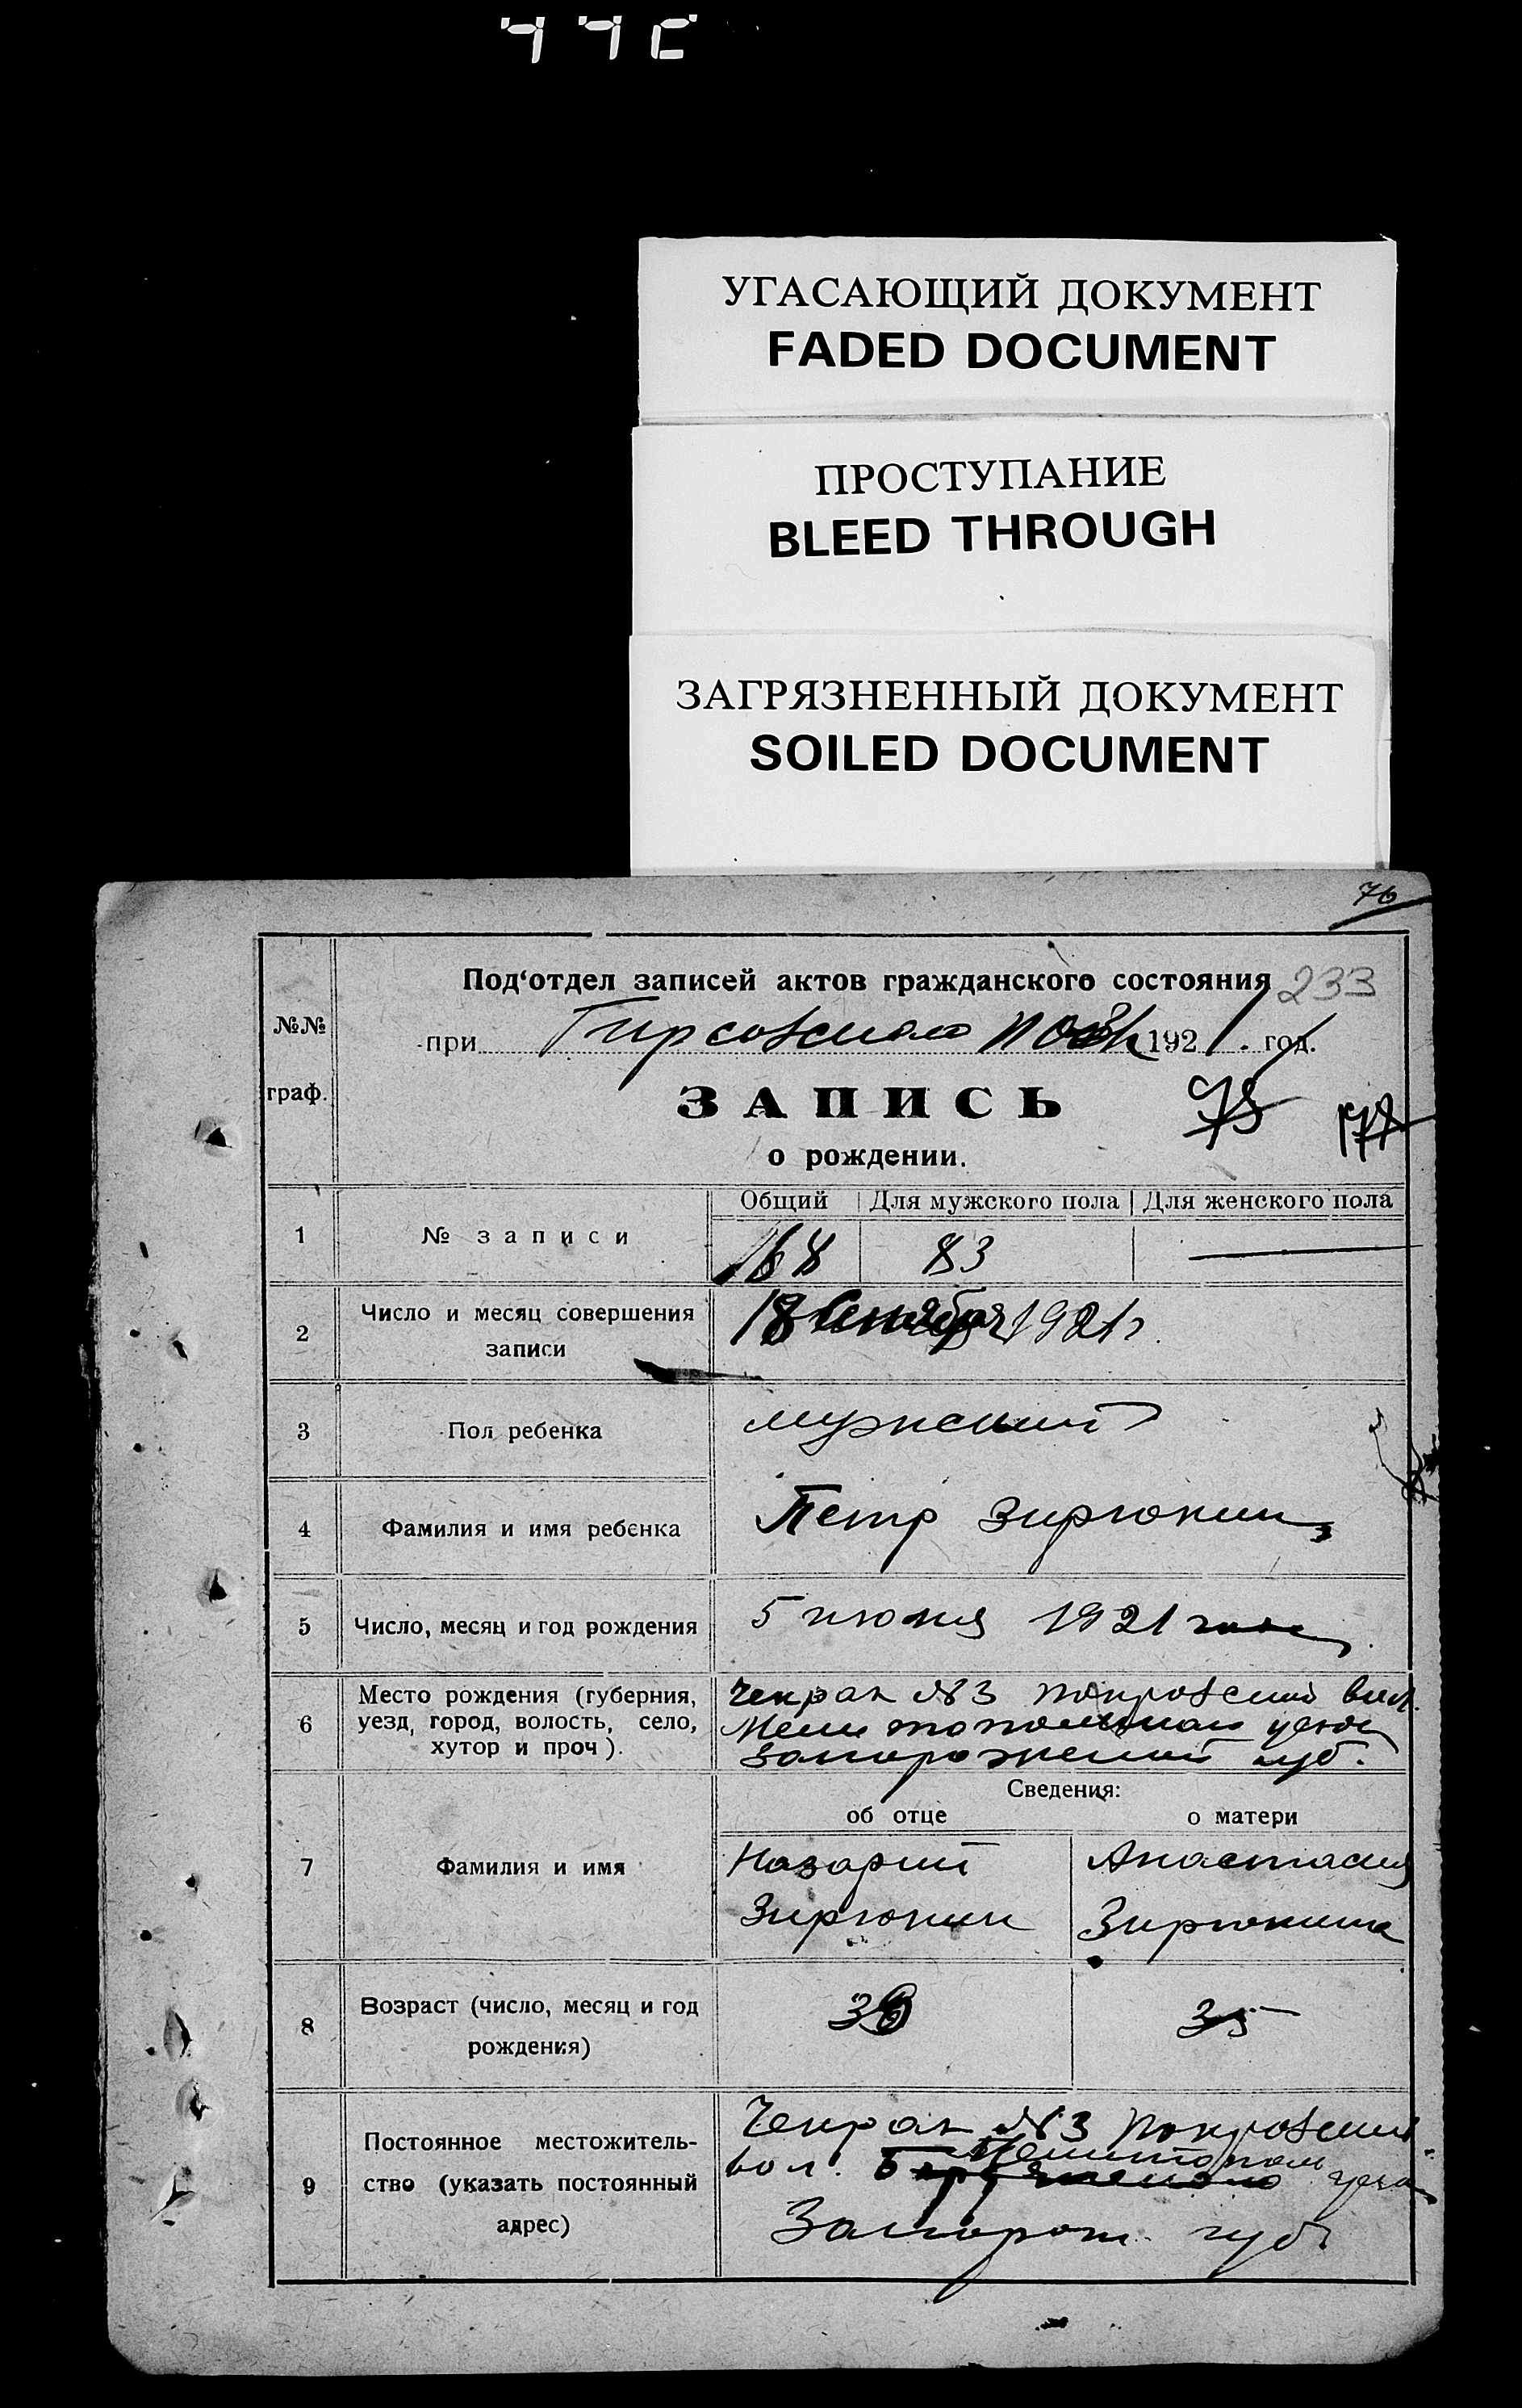 УГАСАЮЩИЙ ДОКУМЕНТ
FADED DOCUMENT
ПРОСТУПАНИЕ
BLEED THROUGH
ЗАГРЯЗНЕННЫЙ ДОКУМЕНТ
SOILED DOCUMENT
76
Под‘отдел записей актов гражданского состояния 233
№№ граф.
при Гирсовском 1921 год.
ЗАПИСЬ
78
о рождении.
Общий Для мужского пола Для женского пола
1 № записи 168 83 —
2 Число и месяц совершения записи 18 Сентября 1921 г.
3 Пол ребенка мужской
4 Фамилия и имя ребенка Петр Зирюкин
5 Число, месяц и год рождения 5 июня 1921 года
6 Место рождения (губерния, уезд, город, волость, село, хутор и проч). Чекрак №3 Покровской вол.
Мелитопольском уезде
Запорожской губ.
Сведения:
об отце о матери
7 Фамилия и имя Назарий Анастасия
Зирюкин Зирюкина
8 Возраст (число, месяц и год рождения) 35
9 Постоянное местожительство (указать постоянный адрес) Чекрак №3 Покровской
вол. Мелитопол уезда
Запорож. губ.